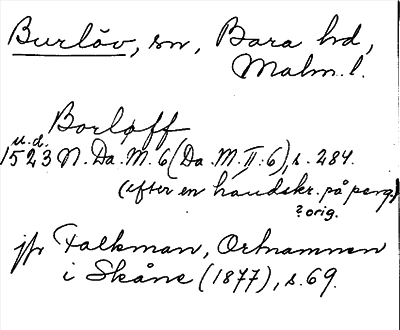 Burlöv, sn, Bara hd,
Malm. l.
Borløff
u. d.
1523 N. Da. M. 6 (Da. M. II: 6), s. 284.
(efter en handskr. på perg)
? orig.
jfr Falkman, Ortnamnen
i Skåne (1877), s. 69.